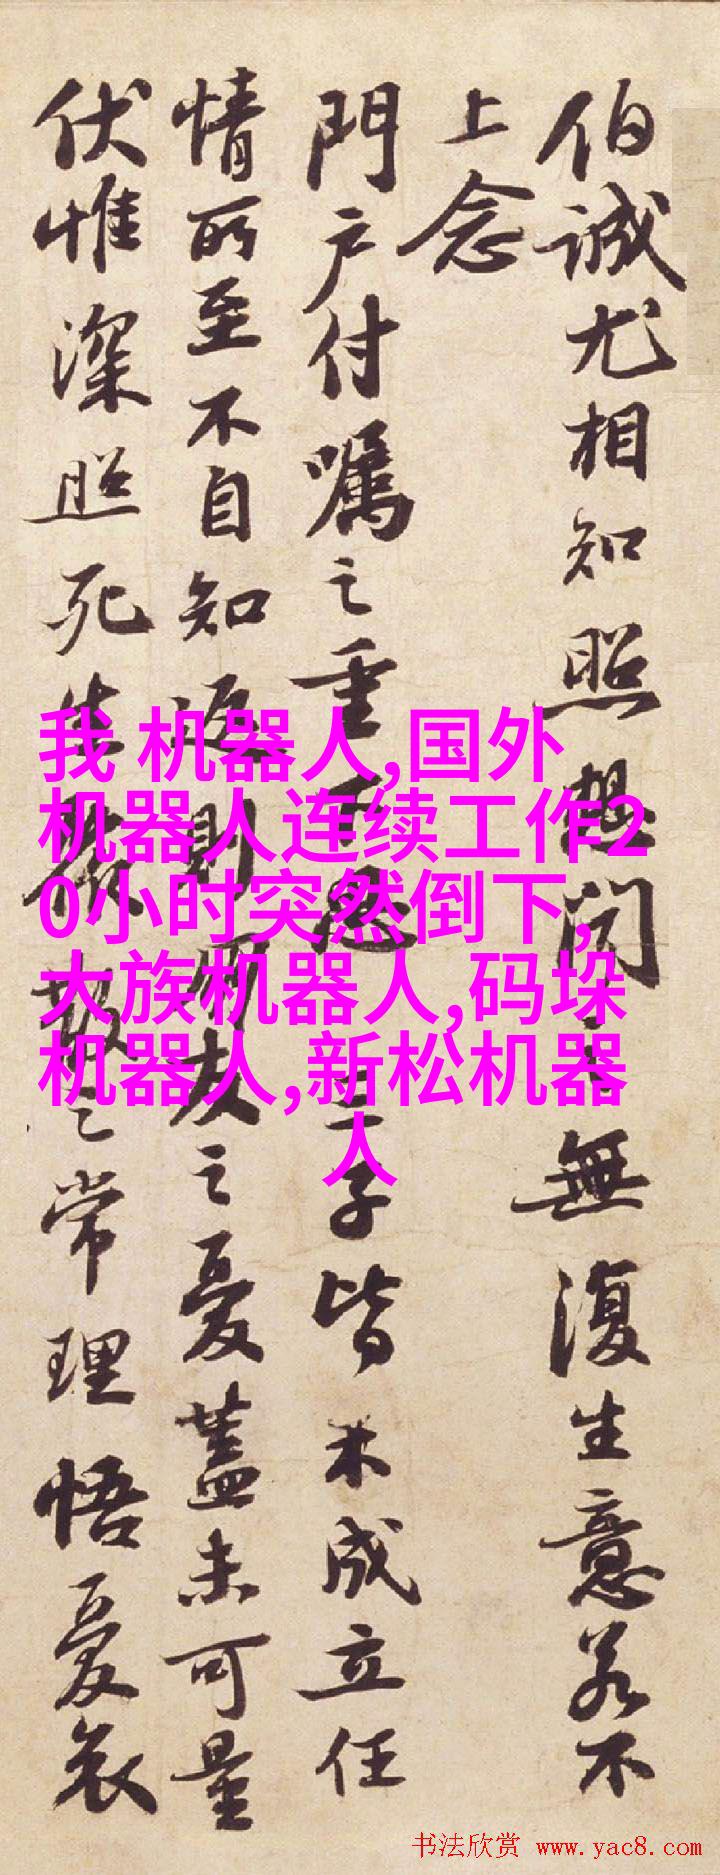 伯誠尤相知照想聞之無復生意若不
上念
門戶付囑之重下思三子皆未成立任
情所至不自知返則朋友之憂蓋未可量
伏惟深照死生聚散之常理悟憂哀
我 机器人,国外
机器人连续工作2
0小时突然倒下,
大族机器人,码垛
机器人,新松机器
人
书法欣赏 www.yac8.com